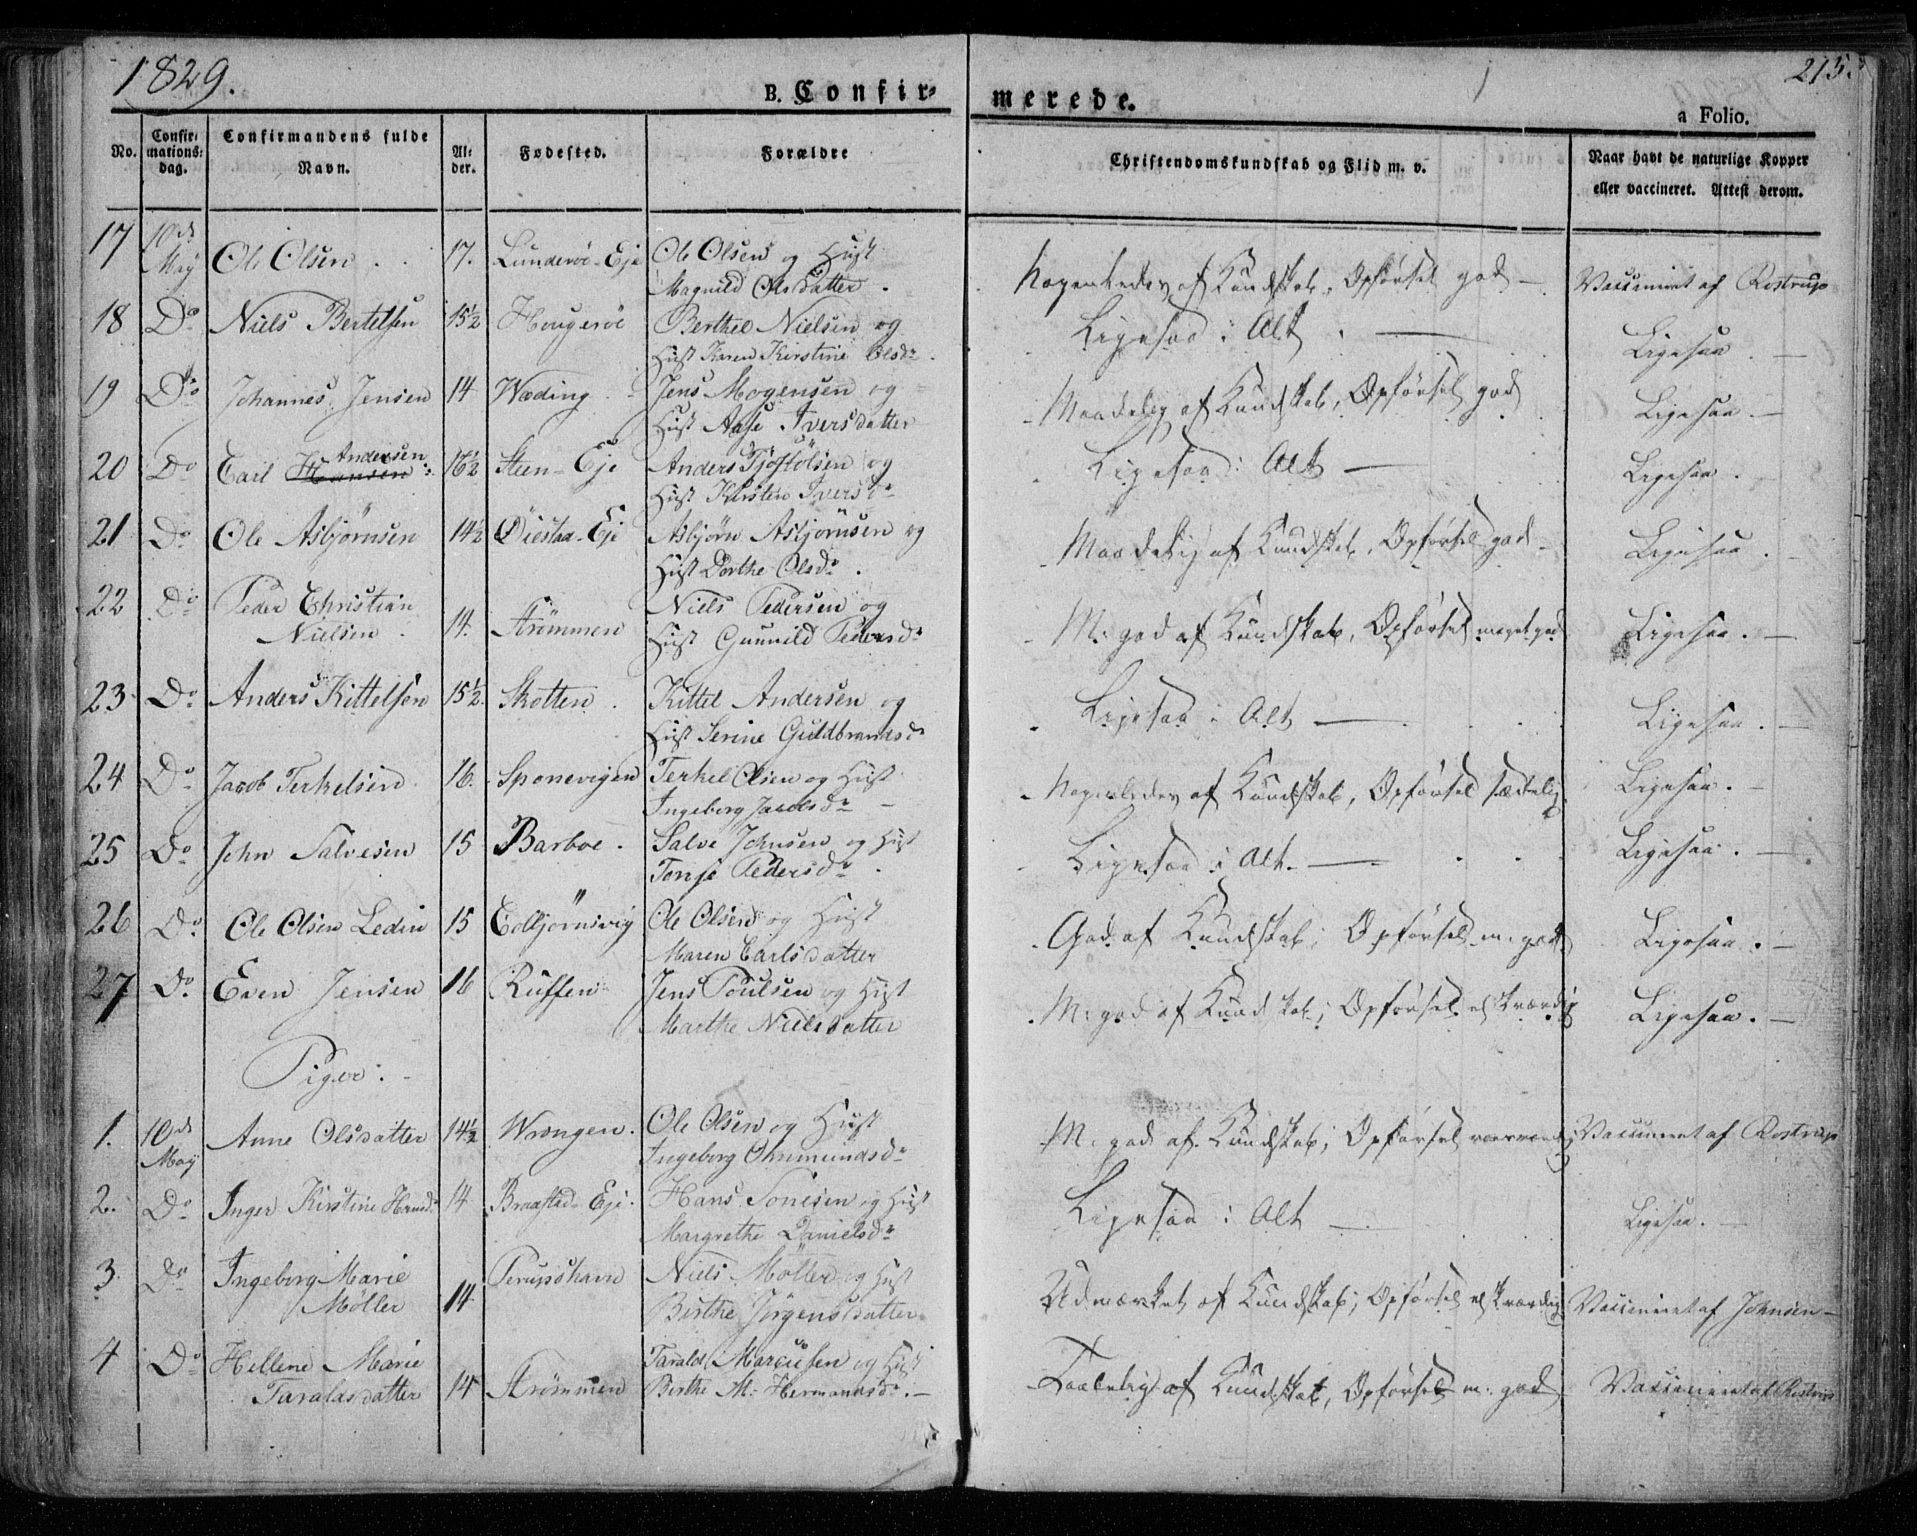 1829.
B. Confirmerede.
215.
a Folio.
No. Confirmations: dag. Confirmandens fulde Navn. Alder. Fødested. Forældre Christendomskundskab og Flid m. v. Naar havt de naturlige Kopper eller vaccineret. Attest derom.
17 10de May Ole Olsen 17. Eje Ole Olsen og Hust Magnild Olsdatter. af Kundskab, Opførsel god Vaccineret af Rostrup
18 Do Niels Bertelsen 15½ Hougerøe Berthel Nielsen og Hust Karen Kirstine Olsdr. Ligesaa i Alt Ligesaa.
19 Do Johannes Jensen 14 Wæding Jens Mogensen og Hust Aase Iversdatter Maadelig af Kundskab, Opførsel god Ligesaa.
20 Do Carl Hansen Andersen 16½ Steen-Eje Anders Tjøstolsen og Hust Kirsten Iversdr Ligesaa i Alt Ligesaa.
21 Do Ole Asbjørnsen 14½ Øiestad-Eje Asbjørn Asbjørnsen og Hust Dorthe Olsdr. Maadelig af Kundskab, Opførsel god Ligesaa.
22 Do Peder Christian Nielsen 14. Strømmen Niels Pedersen og Hust Gunnild Pedersdr M: god af Kundskab, Opførsel meget god Ligesaa.
23 Do Anders Kittelsen 15½ Skotten Kittel Andersen og Hust Serine Guldbrandsdr Ligesaa i Alt Ligesaa.
24 Do Jacob Terkelsen 16. Sponevigen Terkel Olsen og Hust Ingeborg Jacobsdr af Kundskab, Opførsel sædelig Ligesaa.
25 Do John Salvesen 15 Barboe. Salve Johnsen og Hust Tonje Pedersdr. Ligesaa i Alt. Ligesaa.
26 Do. Ole Olsen Ledin 15 Colbjørnsvig Ole Olsen og Hust Maren Carlsdatter God af Kundskab; Opførsel m. god Ligesaa.
27 Do. Even Jensen 16 Ruffen Jens Poulsen og Hust Marthe Nielsdatter M: god af Kundskab; Opførsel elskværdig Ligesaa.
Piger.
1. 10de May Anne Olsdatter 14½ Wrængen. Ole Olsen og Hust Ingeborg Ommundsdr M: god af Kundskab; Opførsel Vaccineret af Rostrup
2. Do Inger Kirstine Hansdr 14 Braastad-Eje. Hans Tonesen og Hust Margrethe Danielsdr Ligesaa i Alt Ligesaa.
3. Do Ingeborg Marie Møller 14 Niels Møller og Hust Birthe Jørgensdatter Udmærket af Kundskab; Opførsel elskværdig Vaccineret af Johnsen
4 Do Hellene Marie Taraldsdatter 14 Strømmen Tarald Marcussen og Hust Birthe M: Hermandsdr. Taalelig af Kundskab, Opførsel m: god Vaccineret af Rostrup